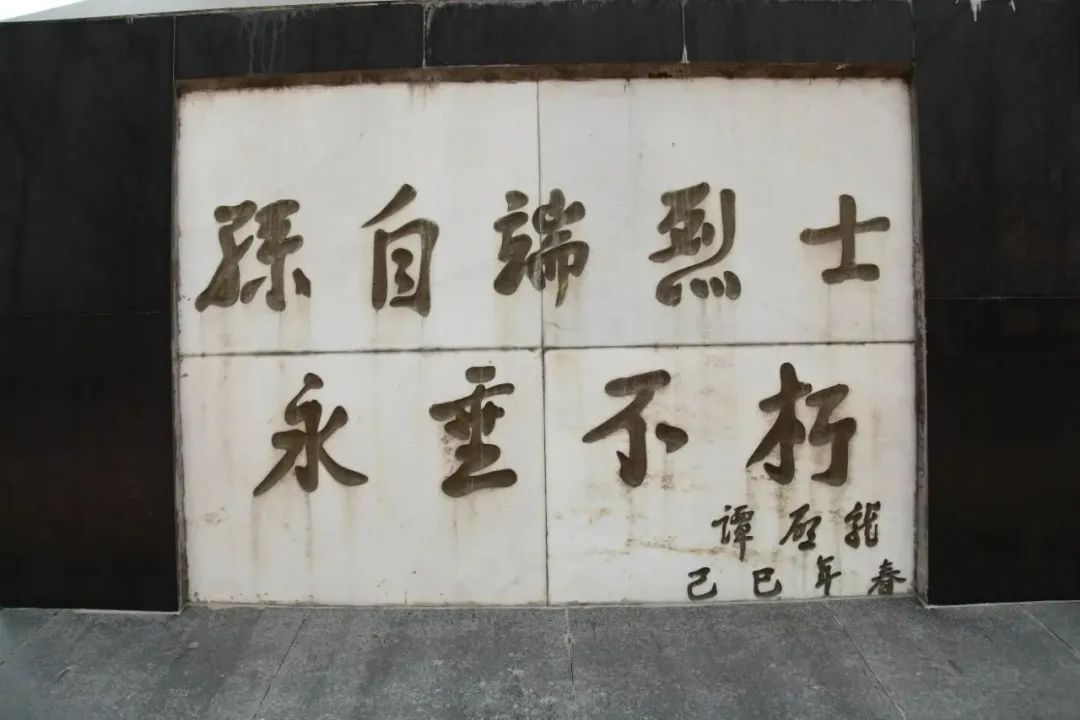 孫自端烈士
永垂不朽
谭启龙
己巳年春